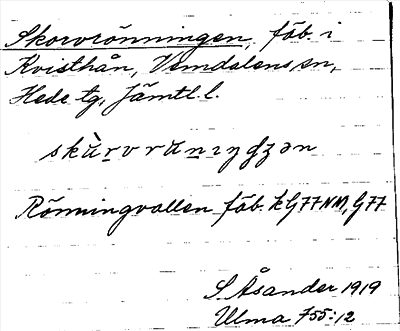 Skorvrönningen, fäb. i
Kvisthån, Vemdalens sn,
Hede tg, Jämtl. l.
Rönningvallen fäb. k G77 NM, G77
S. Åsander 1919
Ulma 755:12